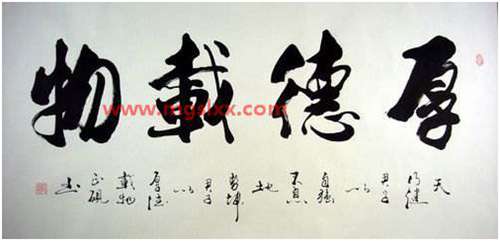 厚德載物
www.mgslxx.com
天行健君子以自强不息地势坤君子以厚德載物